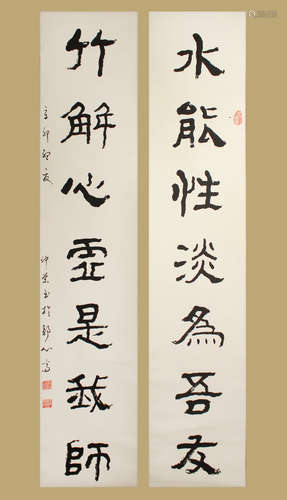 水能性淡為吾友
竹解心虛是我師
辛卯初夏